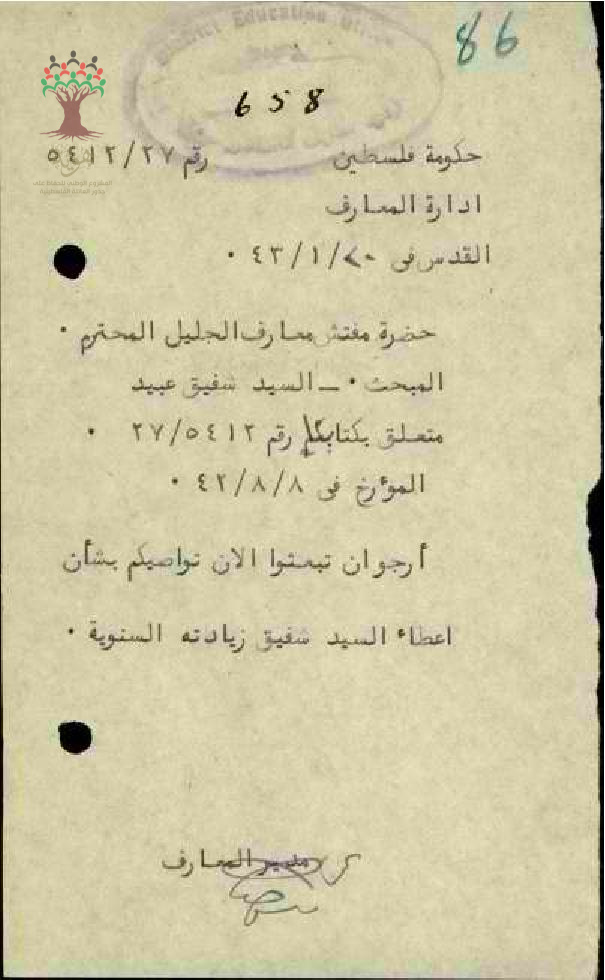 86
District Education Office
658
حكومة فلسطين رقم ٥٤١٢/٢٧
ادارة المعارف
القدس فى ٢٠/١/٤٣ ٠
حضرة مفتش معارف الجليل المحترم ٠
المبحث ٠ – السيد شفيق عبيد
متعلق بكتابكم رقم ٢٧/٥٤١٢ ٠
المؤرخ فى ٤٢/٨/٨ ٠
أرجو ان تبعثوا الان تواصيكم بشأن
اعطاء السيد شفيق زيادته السنوية ٠
مدير المعارف